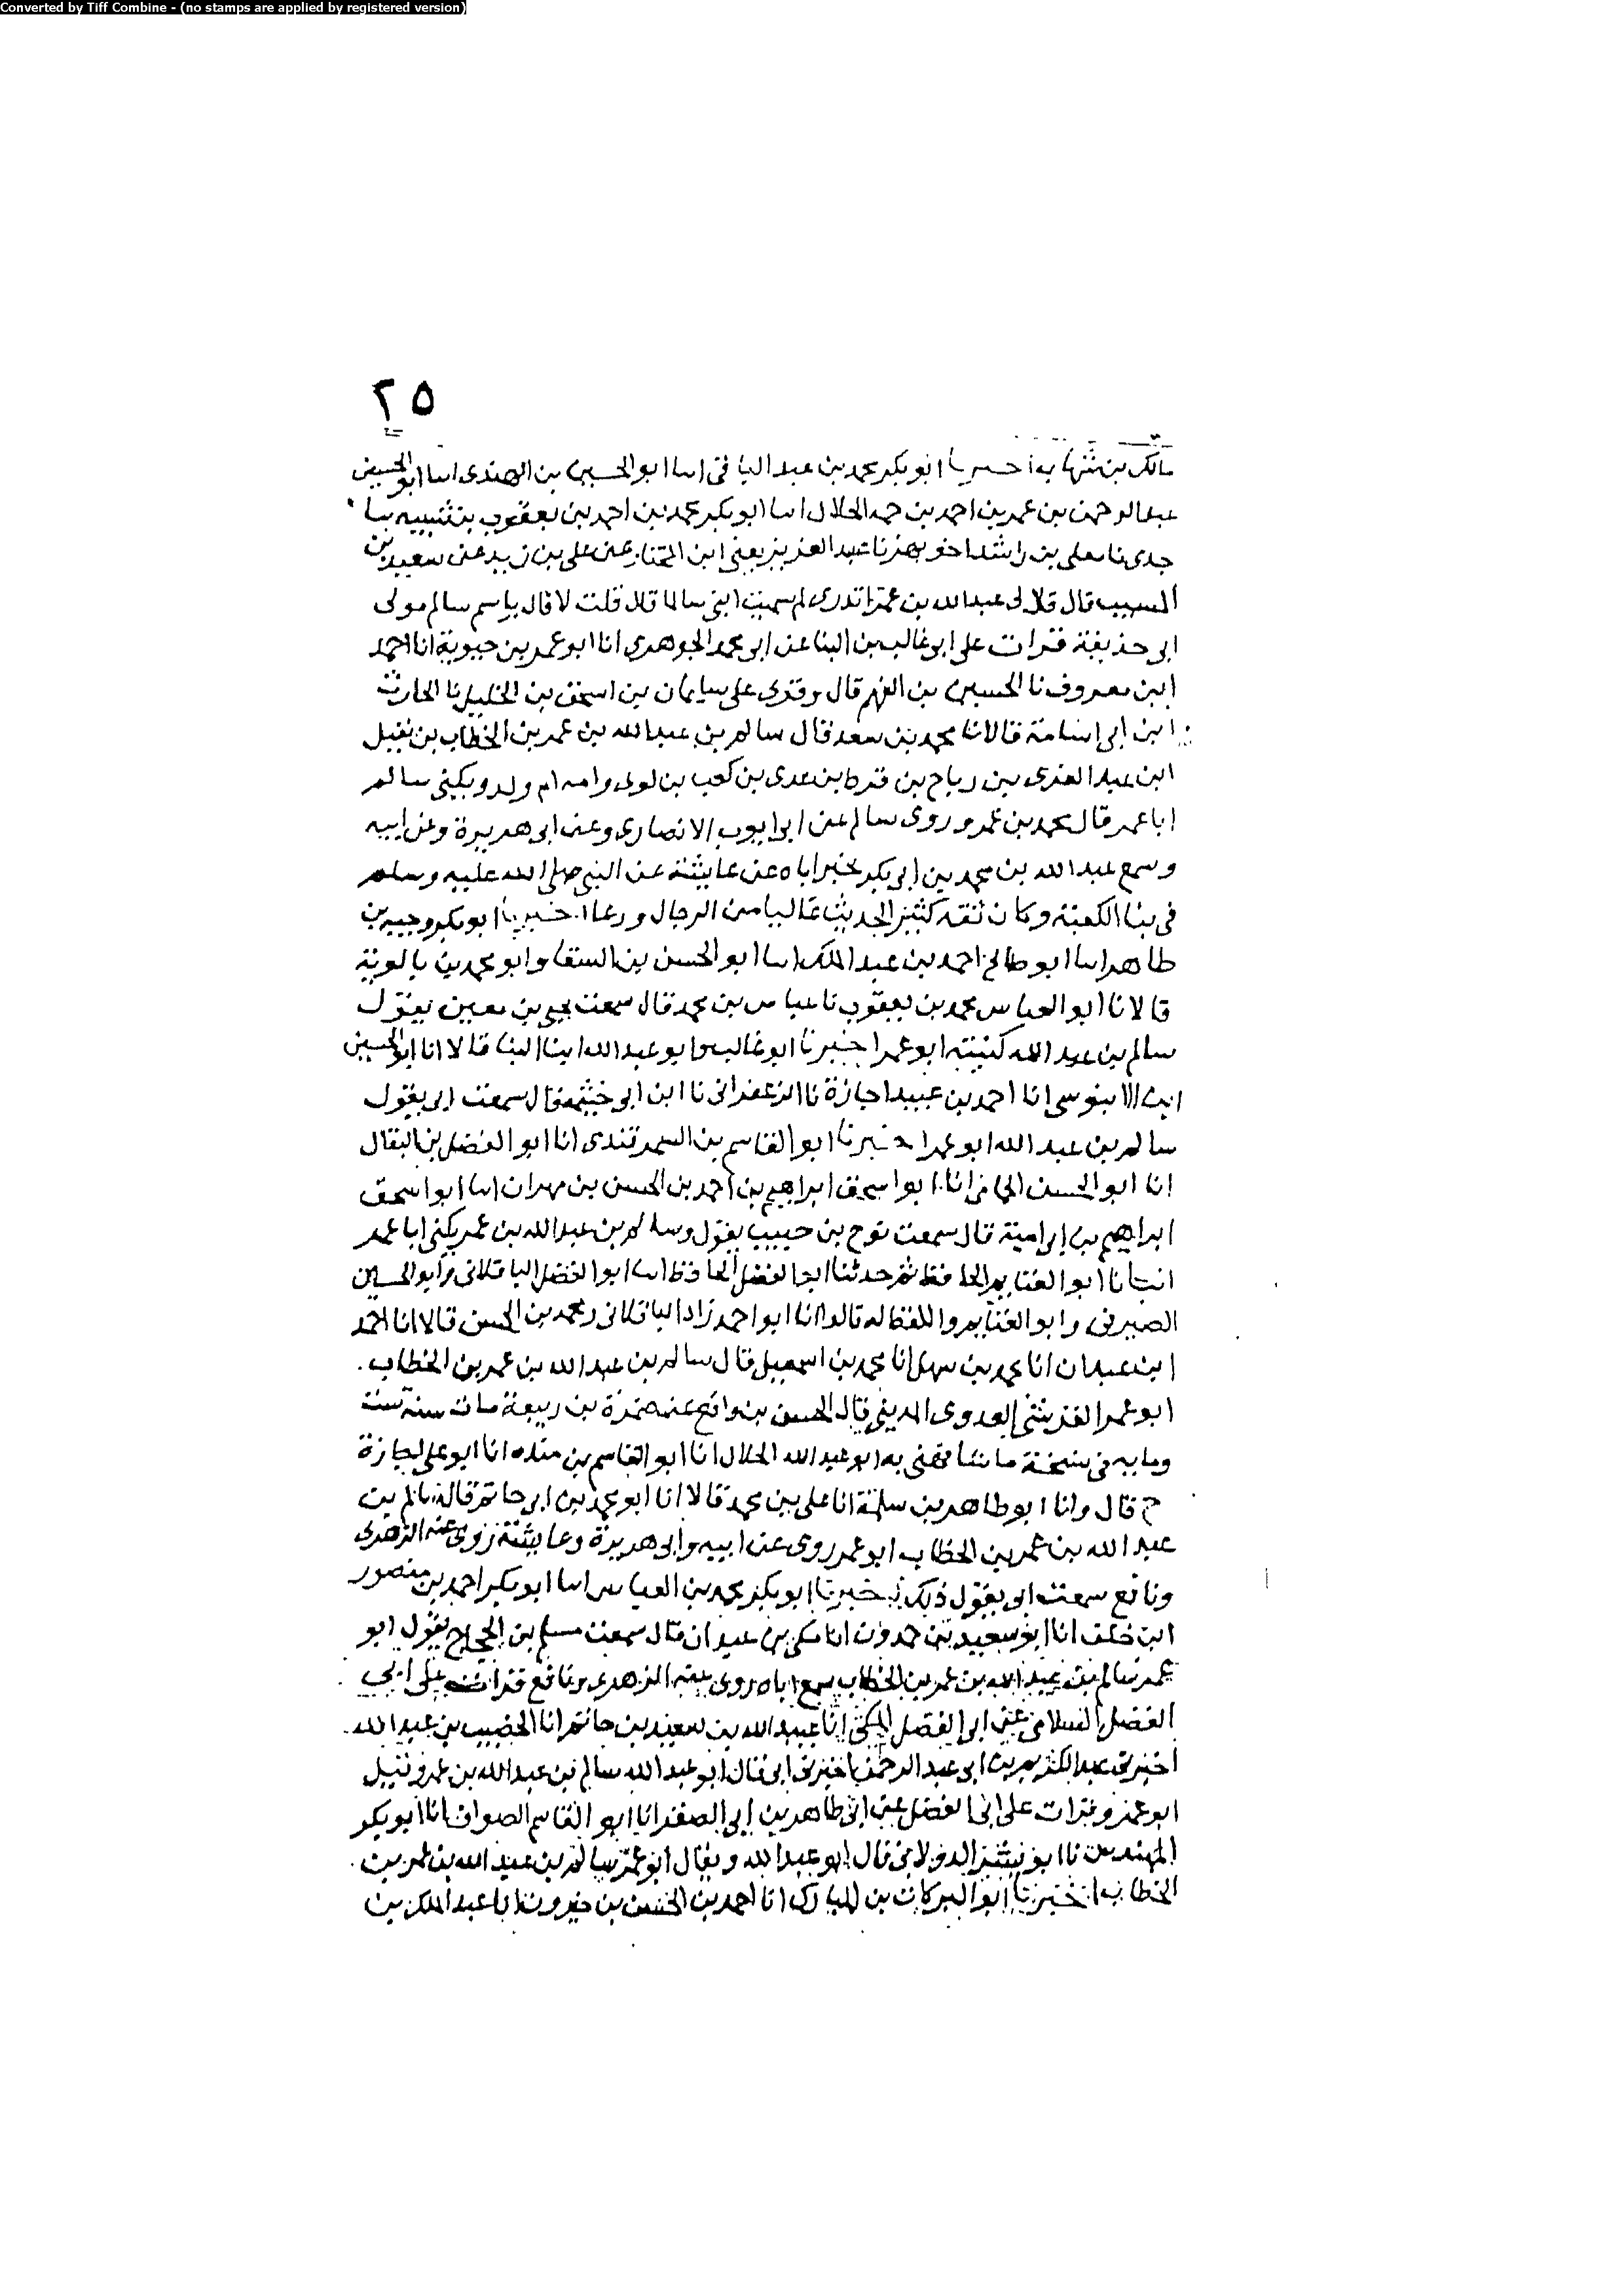 Converted by Tiff Combine - (no stamps are applied by registered version)
٢٥
مالك بن شهاب به اخبرنا ابو بكر محمد بن عبد الباقى اسا ابو الحسين بن المهتدى اسا ابو الحسين
عبد الرحمن بن عمر بن احمد بن حمه الخلال اسا ابو بكر محمد بن احمد بن يعقوب بن شيبه سا
جدى نا معلى بن راشد اخو بهز نا عبد العزيز يعنى ابن المختار عن على بن زيد عن سعيد بن
المسيب قال قال لى عبد الله بن عمر اتدرى لم سميت ابنى سالما قال قلت لا قال باسم سالم مولى
ابى حذيفة قرات على ابو غالب بن البنا عن ابى محمد الجوهرى انا ابو عمر بن حيوية انا احمد
ابن معروف نا الحسين بن الفهم قال وقرى على سليمان بن اسحق بن الخليل نا الحارث
ابن ابى اسامة قالا نا محمد بن سعد قال سالم بن عبد الله بن عمر بن الخطاب بن نفيل
ابن عبد العزى بن رياح بن قرط بن عدى بن كعب بن لوى وامه ام ولد ويكنى سالم
ابا عمر قال محمد بن عمر وروى سالم عن ابى ايوب الانصارى وعن ابى هريرة وعن ابيه
وسمع عبد الله بن محمد بن ابى بكر يخبر اباه عن عايشة عن النبى صلى الله عليه وسلم
فى بنا الكعبة وكان ثقه كثير الحديث عاليا من الرجال ورعا اخبرنا ابو بكر وجيه بن
طاهر اسا ابو صالح احمد بن عبد الملك اسا ابو الحسن بن السقا وابو محمد بن بالوية
قالا نا ابو العباس محمد بن يعقوب نا عباس بن محمد قال سمعت يحيى بن معين يقول
سالم بن عبد الله كنيته ابو عمر اخبرنا ابو غالب وابو عبد الله ابنا البنا قالا انا ابو الحسين
ابن الابنوسى انا احمد بن عبيد اجازة نا الزعفرانى نا ابن ابى خيثمة قال سمعت ابى يقول
سالم بن عبد الله ابو عمر اخبرنا ابو القاسم بن السمرقندى انا ابو الفضل بن البقال
انا ابو الحسن الحمامى انا ابو اسحق ابراهيم بن احمد بن الحسن بن مهران اسا ابو اسحق
ابراهيم بن ابى امية قال سمعت نوح بن حبيب يقول وسالم بن عبد الله بن عمر يكنى ابا عمر
انبانا ابو الغنايم الحافظ ثم حدثنا ابو الفضل الحافظ اسا ابو الفضل الباقلانى وابو الحسين
الصيرفى وابو الغنايم واللفظ له قالوا انا ابو احمد زاد الباقلانى ومحمد بن الحسن قالا انا احمد
ابن عبدان انا محمد بن سهل انا محمد بن اسمعيل قال سالم بن عبد الله بن عمر بن الخطاب
ابو عمر القرشى العدوى المدينى قال الحسن بن واقع عن ضمرة بن ربيعة مات سنة ست
ومايه فى نسخة ما شافهنى به ابو عبد الله الخلال انا ابو القاسم بن منده انا ابو على اجازة
ح قال وانا ابو طاهر بن سلمة انا على بن محمد قالا انا ابو محمد بن ابى حاتم قال سالم بن
عبد الله بن عمر بن الخطاب ابو عمر روى عن ابيه وابى هريرة وعايشة روى عنه الزهرى
ونافع سمعت ابى يقول ذلك اخبرنا ابو بكر محمد بن العباس اسا ابو بكر احمد بن منصور
ابن خلف انا ابو سعيد بن حمدون انا مكى بن عبدان قال سمعت مسلم بن الحجاج يقول ابو
عمر سالم بن عبد الله بن عمر بن الخطاب سمع اباه روى عنه الزهرى ونافع قرات على ابى
الفضل السلامى عن ابى الفضل المكى انا عبيد الله بن سعيد بن حاتم انا الخصيب بن عبد الله
اخبرنى عبد الكريم بن ابى عبد الرحمن اخبرنى ابى قال ابو عبد الله سالم بن عبد الله بن عمر وقيل
ابو عمر وقرات على ابى الفضل عن ابى طاهر بن ابى الصقر انا ابو القاسم الصواف انا ابو بكر
المهندس نا ابو بشر الدولابى قال ابو عبد الله ويقال ابو عمر سالم بن عبد الله بن عمر بن
الخطاب اخبرنا ابو البركات بن المبارك انا احمد بن الحسن بن خيرون انا عبد الملك بن